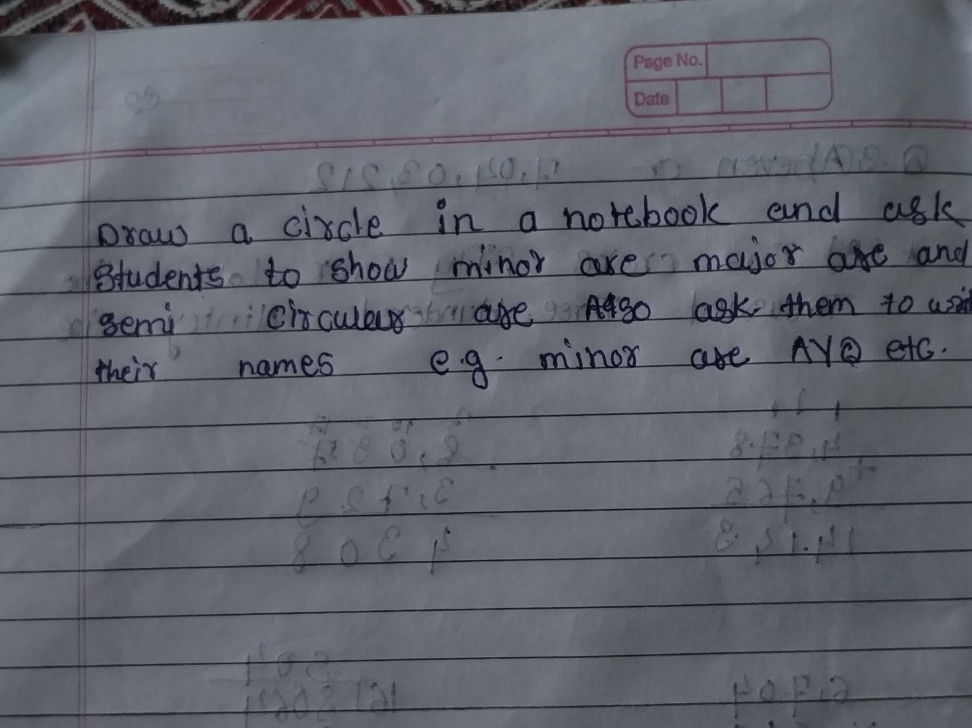 Page No.
Date
Draw a circle in a notebook and ask
students to show minor arc major arc and
semi circular arc Also ask them to
their names e.g. minor arc AYQ etc.